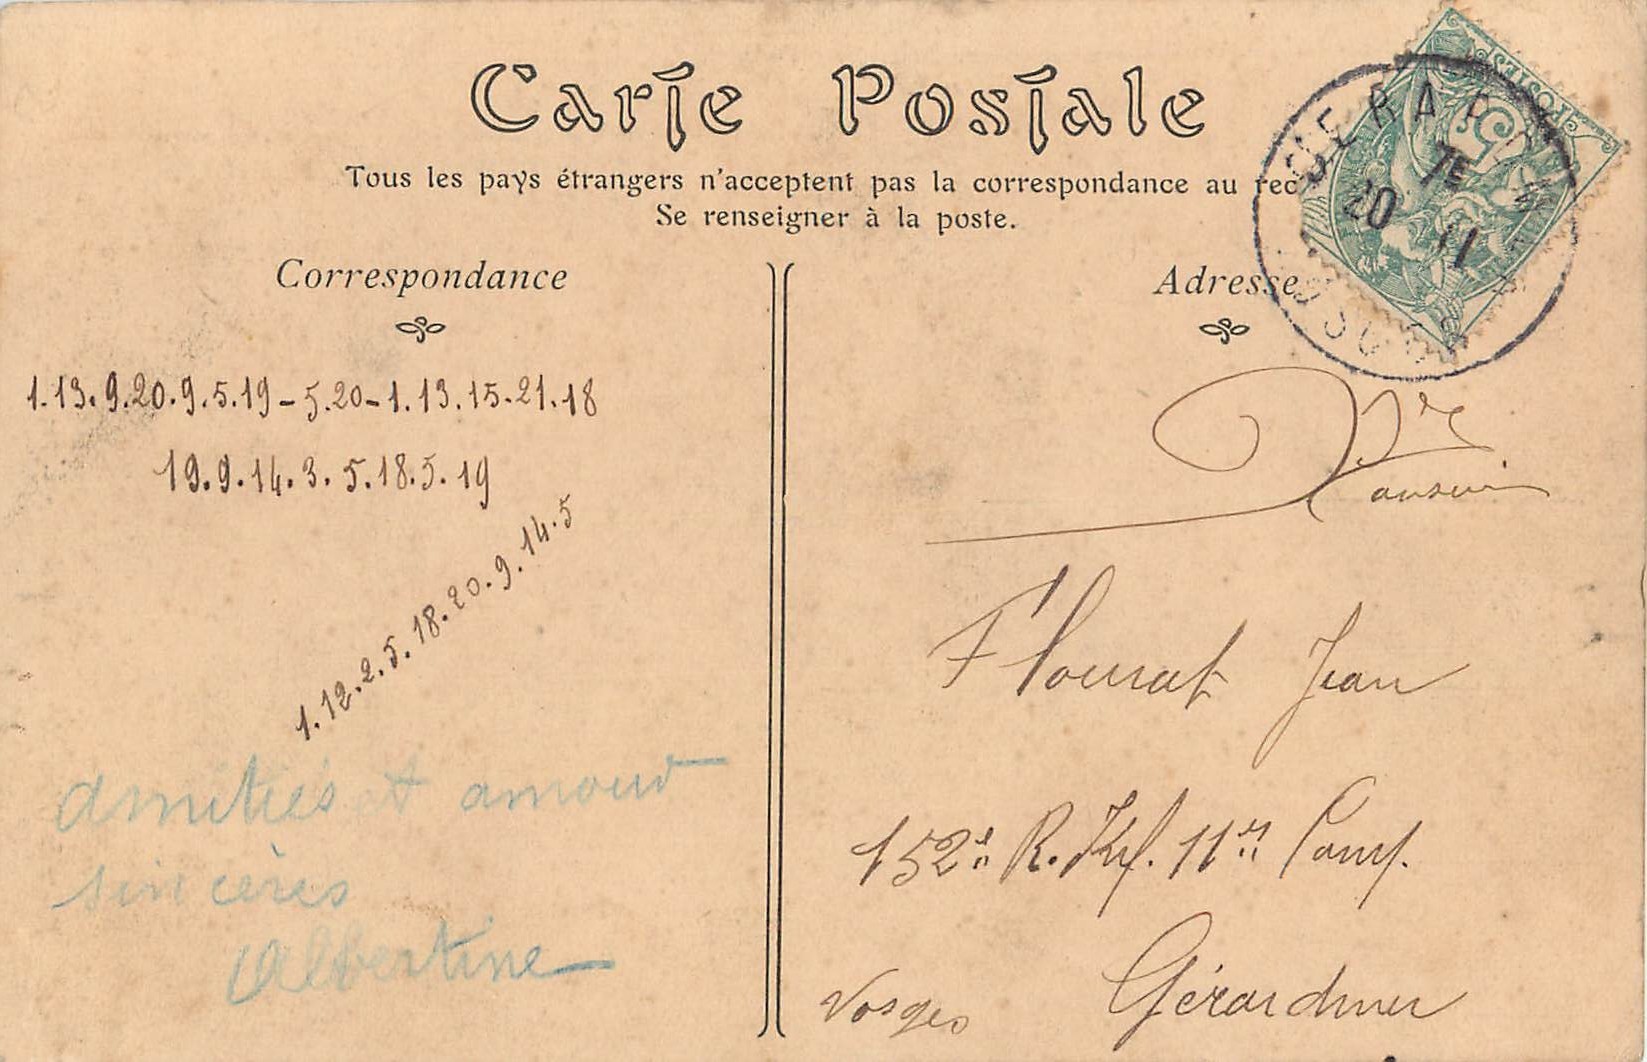 Carte Postale
Tous les pays étrangers n'acceptent pas la correspondance au rec
Se renseigner à la poste.
Correspondance
1.13.9.20.9.5.19-5.20-1.13.15.21.18
19.9.14.3.5.18.5.19
1.12.2.5.18.20.9.14.5
amitiés et amour
sincères
Albertine
POSTES
5
7E
20 11
Adresse
Mr
Flourat Jean
152e R. Inf. 11e Comp.
Gérardmer
Vosges